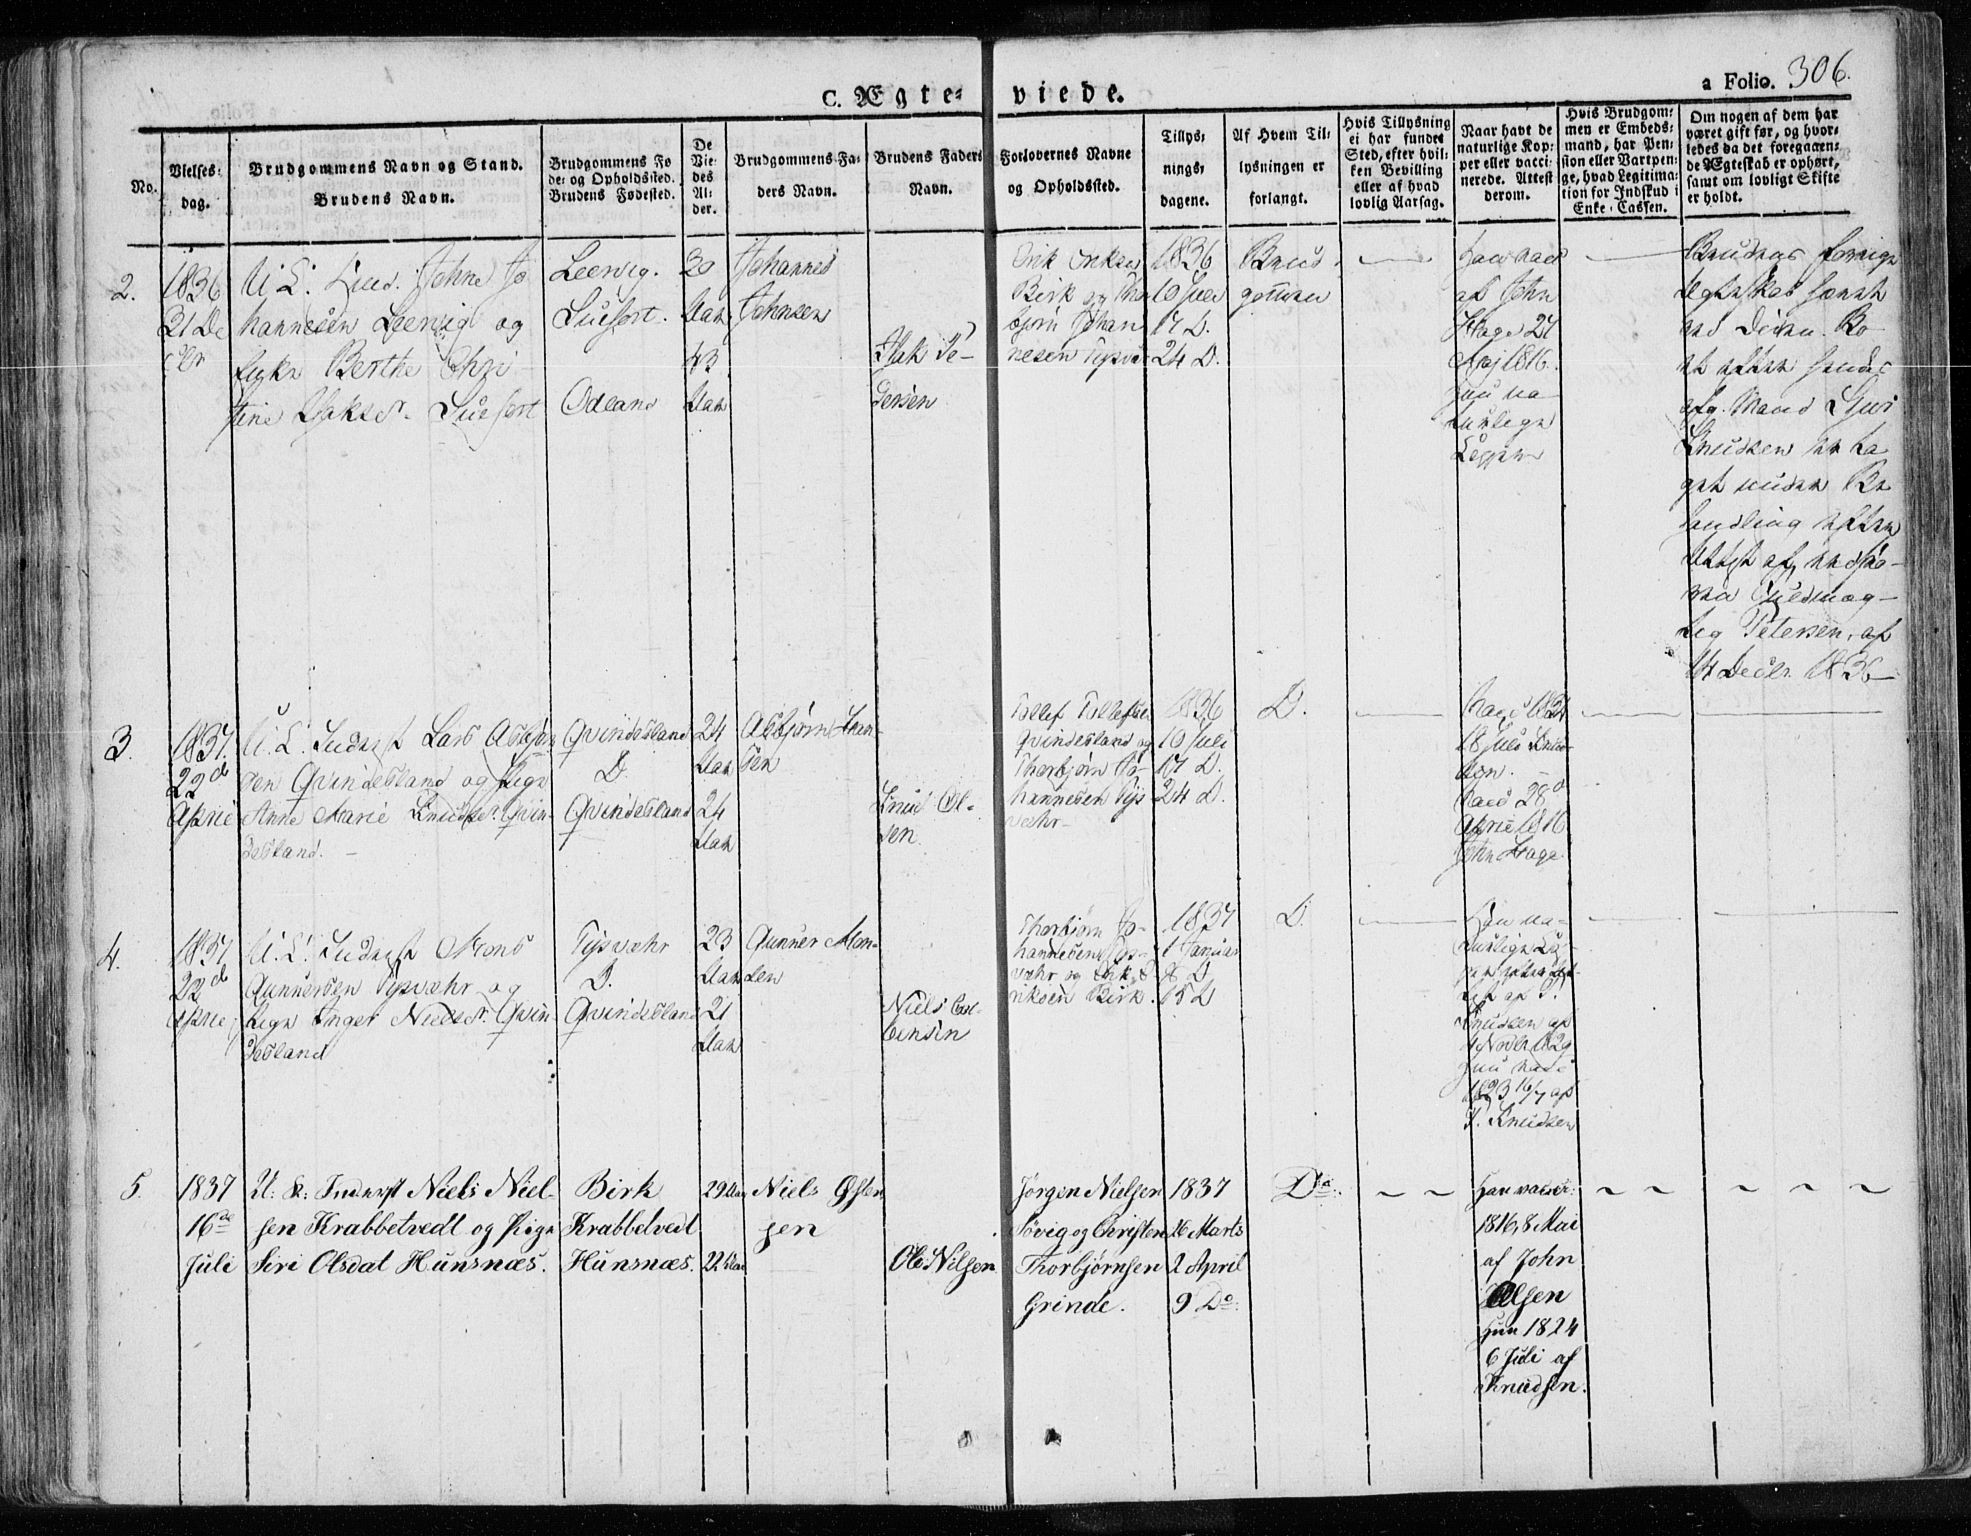 C. Ægte-
viede.
a Folio. 306.
No.
Vielses-
dag.
Brudgommens Navn og Stand.
Brudens Navn.
Brudgommens Fø
de- og Opholdssted.
Brudens Fødested.
De
Vie-
des
Al-
der.
Brudgommens Fa-
ders Navn.
Brudens Faders
Navn.
Forlovernes Navne
og Opholdssted.
Tillys-
nings-
dagene.
Af Hvem Til-
lysningen er
forlangt.
Hvis Tillysning
ei har fundet
Sted, efter hvil-
ken Bevilling
eller af hvad
lovlig Aarsag.
Naar havt de
naturlige Kop-
per eller vacci-
nerede. Attest
derom.
Hvis Brudgom-
men er Embeds-
mand, har Pen-
sion eller Vartpen-
ge, hvad Legitima-
tion for Indskud i
Enke-Cassen.
Om nogen af dem har
været gift før, og hvor-
ledes da det foregaaen-
de Ægteskab er ophørt,
samt om lovligt Skifte
er holdt.
2.
1836
21 De
cbr
U: L: John Jo
hannesen Leervig og
Enke Berthe Chri
stine Isaksdr.
Leervig.
Odland
30
Aar
43
Aar
Johannes
Johnsen
Isak Pe-
dersen
Erik Eriksen
Birk og Thor
bjørn Johan
nesen Tysvær
1836
10 Juli
17 D.
24 D.
Brud-
gommen
Han vacc
af John
Hage 27
Maj 1816.
Hun na-
turlige
Kopper
Brudens forrige
Ægteskab
afg. Mand
Knudsen er ta
get under Be
handling efter
Attest af
Petersen, af
14 Decbr. 1836
3.
1837.
22d
April
U: L: Inderst Lars Asbjørn
sen Qvindesland og Pige
Anne Marie Knudsdr. Qvin-
desland.
Qvindesland
D.
Qvindesland
24
Aar
24
Aar
Asbjørn
sen
Knud Ol-
sen.
Tollef Tollefsen
Qvindesland og
Thorbjørn Jo-
hannesen Tys
vær
1836
10 Juli
17 D.
24 D.
D.
18 Juli Knud-
sen.
Vacc 28d
April 1816
John Hage
4.
1837
22d
April
U: L: Inderst Mons
Gunnersen Tysvæhr og
Pige Inger Nielsdr. Qvin-
desland
Tysvæhr
D.
Qvindesland
23
Aar
21
Aar
Gunner Mon-
sen
Niels
Thorbjørn Jo-
hannesen Tys-
væhr og Erik E
riksen Birk.
1837
1 Januar
8 D
15 D
D.
Han na-
turlige Kop-
per
Knudsen af
4 Novbr 1829
Hun vacc
1823 16/7 af
P. Knudsen
5.
1837
16de
Juli
U: K: Inderst Niels Niel-
sen Krabbetvedt og Pige
Siri Olsdat Hunsnæs.
Birk
Krabbetvedt
Hunsnæs.
29 Aar
22 Aar
Niels Østen
sen
Ole Nilsen
Jørgen Nielsen
Søvig og Christen
Thorbjørnsen
Grinde.
1837
26 Marts
2 April
9 Do:
Do:
Han vacci:
1816, 8 Mai
af John
Olsen
Hun 1824
6 Juli af
Knudsen.